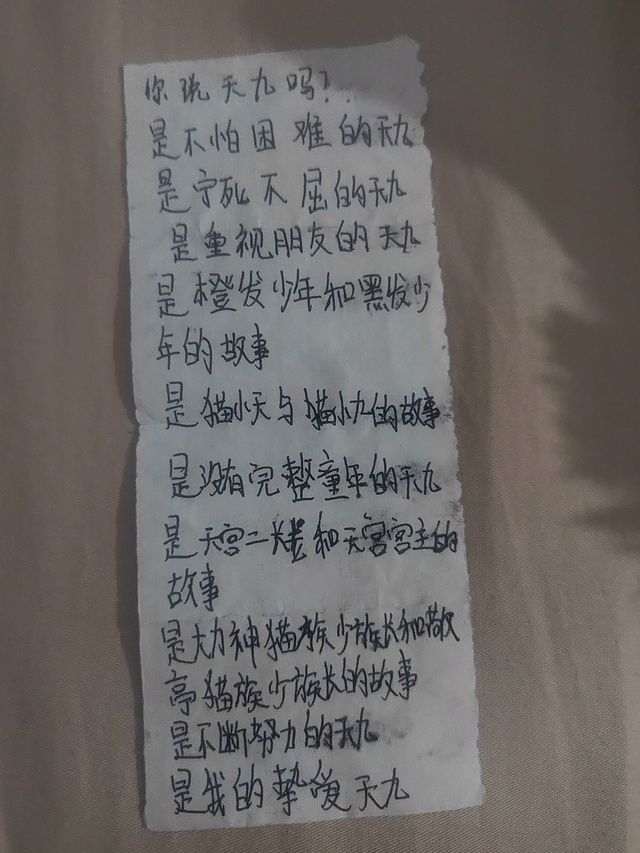 你说天九吗?..
是不怕困难的天九
是宁死不屈的天九
是重视朋友的天九
是橙发少年和黑发少
年的故事
是猫小天与猫小九的故事
是没有完整童年的天九
是天宫二长老和天宫宫主的
故事
是大力神猫族少族长和歌
亭猫族少族长的故事
是不断努力的天九
是我的挚爱天九